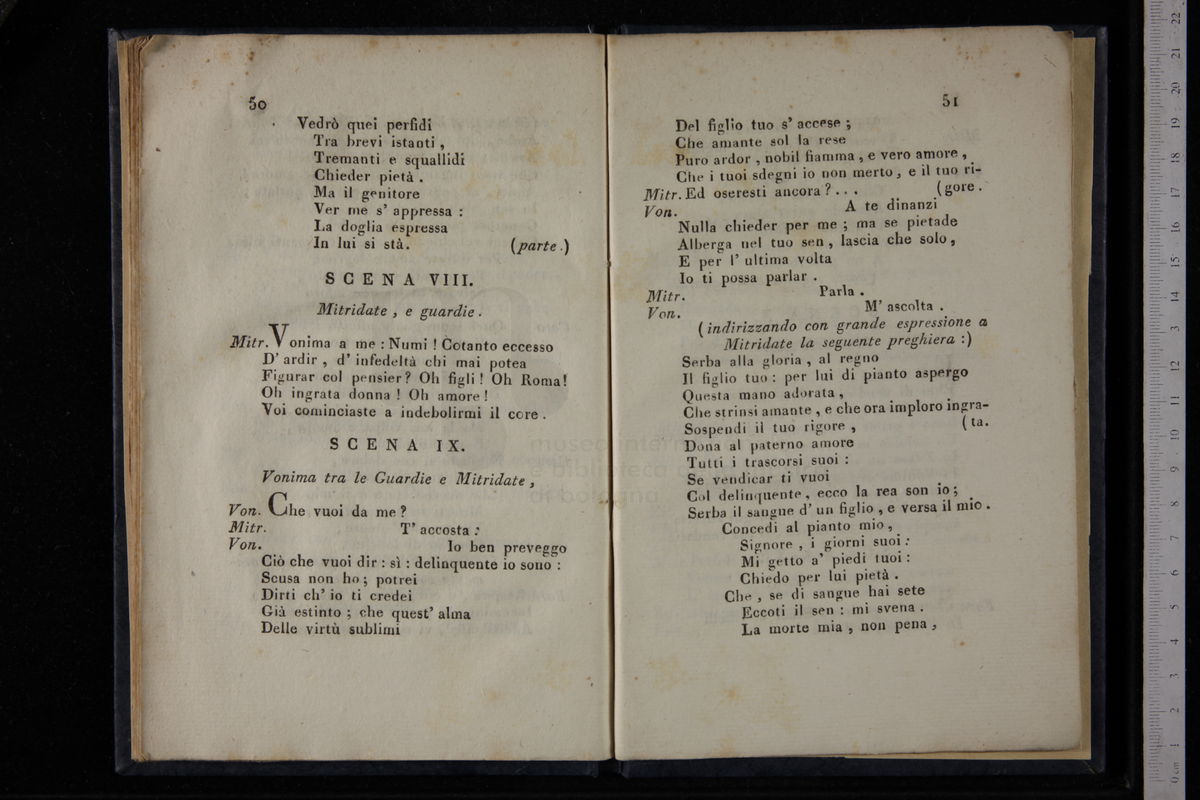 50
Vedrò quei perfidi
Tra brevi istanti ,
Tremanti e squallidi
Chieder pietà .
Ma il genitore
Ver me s' appressa :
La doglia espressa
In lui si stà. (parte .)
SCENA VIII.
Mitridate , e guardie .
Mitr. Vonima a me : Numi ! Cotanto eccesso
D' ardir , d' infedeltà chi mai potea
Figurar col pensier ? Oh figli ! Oh Roma !
Oh ingrata donna ! Oh amore !
Voi cominciaste a indebolirmi il core .
SCENA IX.
Vonima tra le Guardie e Mitridate ,
Von. Che vuoi da me ?
Mitr. T' accosta :
Von. Io ben preveggo
Ciò che vuoi dir : sì : delinquente io sono :
Scusa non ho ; potrei
Dirti ch' io ti credei
Già estinto ; che quest' alma
Delle virtù sublimi
51
Del figlio tuo s' accese ;
Che amante sol la rese
Puro ardor , nobil fiamma , e vero amore ,
Che i tuoi sdegni io non merto , e il tuo ri-
Mitr. Ed oseresti ancora ? . . . (gore .
Von. A te dinanzi
Nulla chieder per me ; ma se pietade
Alberga nel tuo sen , lascia che solo ,
E per l' ultima volta
Io ti possa parlar .
Mitr. Parla .
Von. M' ascolta .
( indirizzando con grande espressione a
Mitridate la seguente preghiera :)
Serba alla gloria , al regno
Il figlio tuo : per lui di pianto aspergo
Questa mano adorata ,
Che strinsi amante , e che ora imploro ingra-
Sospendi il tuo rigore , ( ta.
Dona al paterno amore
Tutti i trascorsi suoi :
Se vendicar ti vuoi
Col delinquente , ecco la rea son io ;
Serba il sangue d' un figlio , e versa il mio .
Concedi al pianto mio ,
Signore , i giorni suoi :
Mi getto a' piedi tuoi :
Chiedo per lui pietà .
Che , se di sangue hai sete
Eccoti il sen : mi svena .
La morte mia , non pena ,
museo inter
e biblioteca
di bologna
0 cm 1 2 3 4 5 6 7 8 9 10 11 12 13 14 15 16 17 18 19 20 21 22